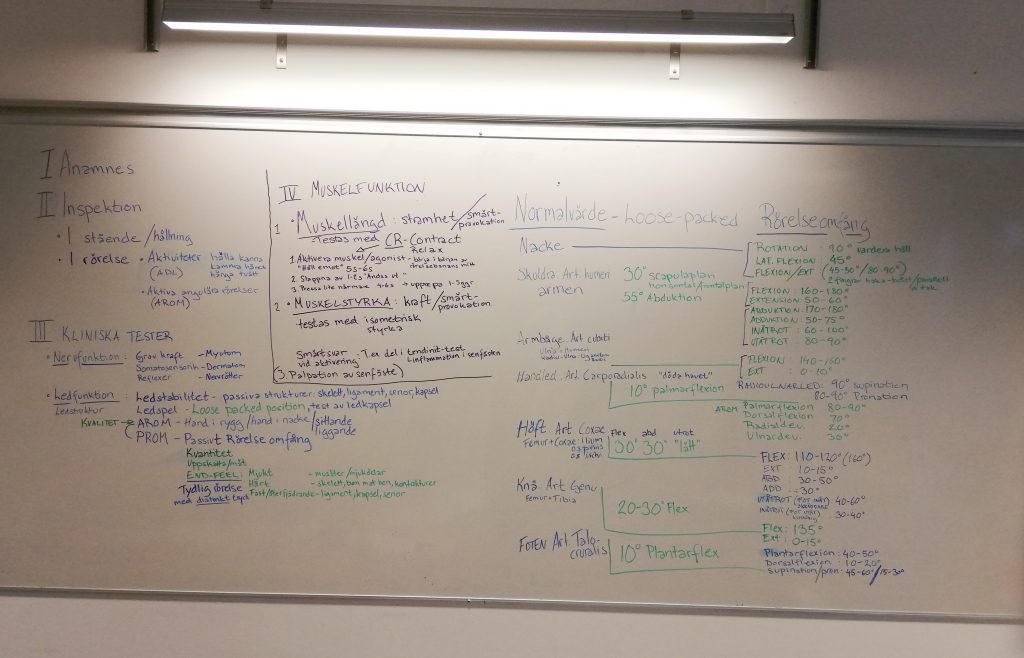 I Anamnes
II Inspektion
• I stående/hållning
• I rörelse • Aktiviteter (ADL) hålla kanna kamma håret hänga tvätt
• Aktiva angulära rörelser (AROM)
III KLINISKA TESTER
• Nervfunktion: Grov kraft - Myotom
Somatosensorik - Dermatom
Reflexer - Nervrötter
• Ledfunktion: Ledstabilitet - passiva strukturer: skelett, ligament, senor, kapsel
Ledstruktur Ledspel - Loose packed position, test av ledkapsel
KVALITET AROM - Hand i rygg/hand i nacke/sittande liggande
PROM - Passivt Rörelseomfång
Kvantitet
Uppskatta/mät
END-FEEL: Mjukt - muskler/mjukdelar
Tydlig rörelse Hårt - skelett, ben mot ben, kontakturer
med distinkt tryck Fast/återfjädrande - ligament, kapsel, senor
IV MUSKELFUNKTION
1 • Muskellängd: stramhet/smärt-provokation
Testas med CR - Contract Relax
1 Aktivera muskel/agonist - börja i början av rörelsebanans mitt
"Håll emot" 5s-6s
2. Slappna av 1-2s "Andas ut"
3. Pressa lite närmare 4-6s → upprepa 1-5ggr
2 • MUSKELSTYRKA: kraft/smärt-provokation
testas med isometrisk styrka
Smärtsvar vid aktivering: T.ex del i tendinit-test
inflammation i senfästen
(3. Palpation av senfäste)
Normalvärde - Loose-packed Rörelseomfång
Nacke
ROTATION: 90° vardera håll
LAT. FLEXION: 45°
FLEXION/EXT (45-50°/80-90°)
Skuldra Art. humeri
armen
30° Scapulaplan
horisontal/frontalplan
55° Abduktion
FLEXION: 160-180°
EXTENSION: 50-60°
ABDUKTION: 170-180°
ADDUKTION: 50-75°
INÅTROT: 60-100°
UTÅTROT: 80-90°
Armbåge Art. cubiti
FLEXION: 140-160°
EXT: 0-10°
Handled. Art. Carporadialis "döda havet"
10° palmarflexion
RADIOULNARLED: 90° supination
80-90° Pronation
AROM Palmarflexion 80-90°
Dorsalflexion 70°
Radialdev. 20°
Ulnardev. 30°
Höft Art Coxae
Femur + Coxae: ilium
Flex abd utrot
30° 30° "lätt"
FLEX: 110-120° (160°)
EXT 10-15°
ABD 30-50°
ADD -30°
UTÅTROT 40-60°
INÅTROT 30-40°
Knä Art Genu
Femur + Tibia
20-30° Flex
Flex: 135°
Ext: 0-15°
FOTEN Art Talo-cruralis
10° Plantarflex
Plantarflexion: 40-50°
Dorsalflexion: 10-20°
Supination/pron: 45-60°/15-30°